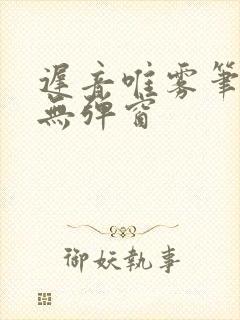 遲音唯雾筆
無弹窗
御妖執事